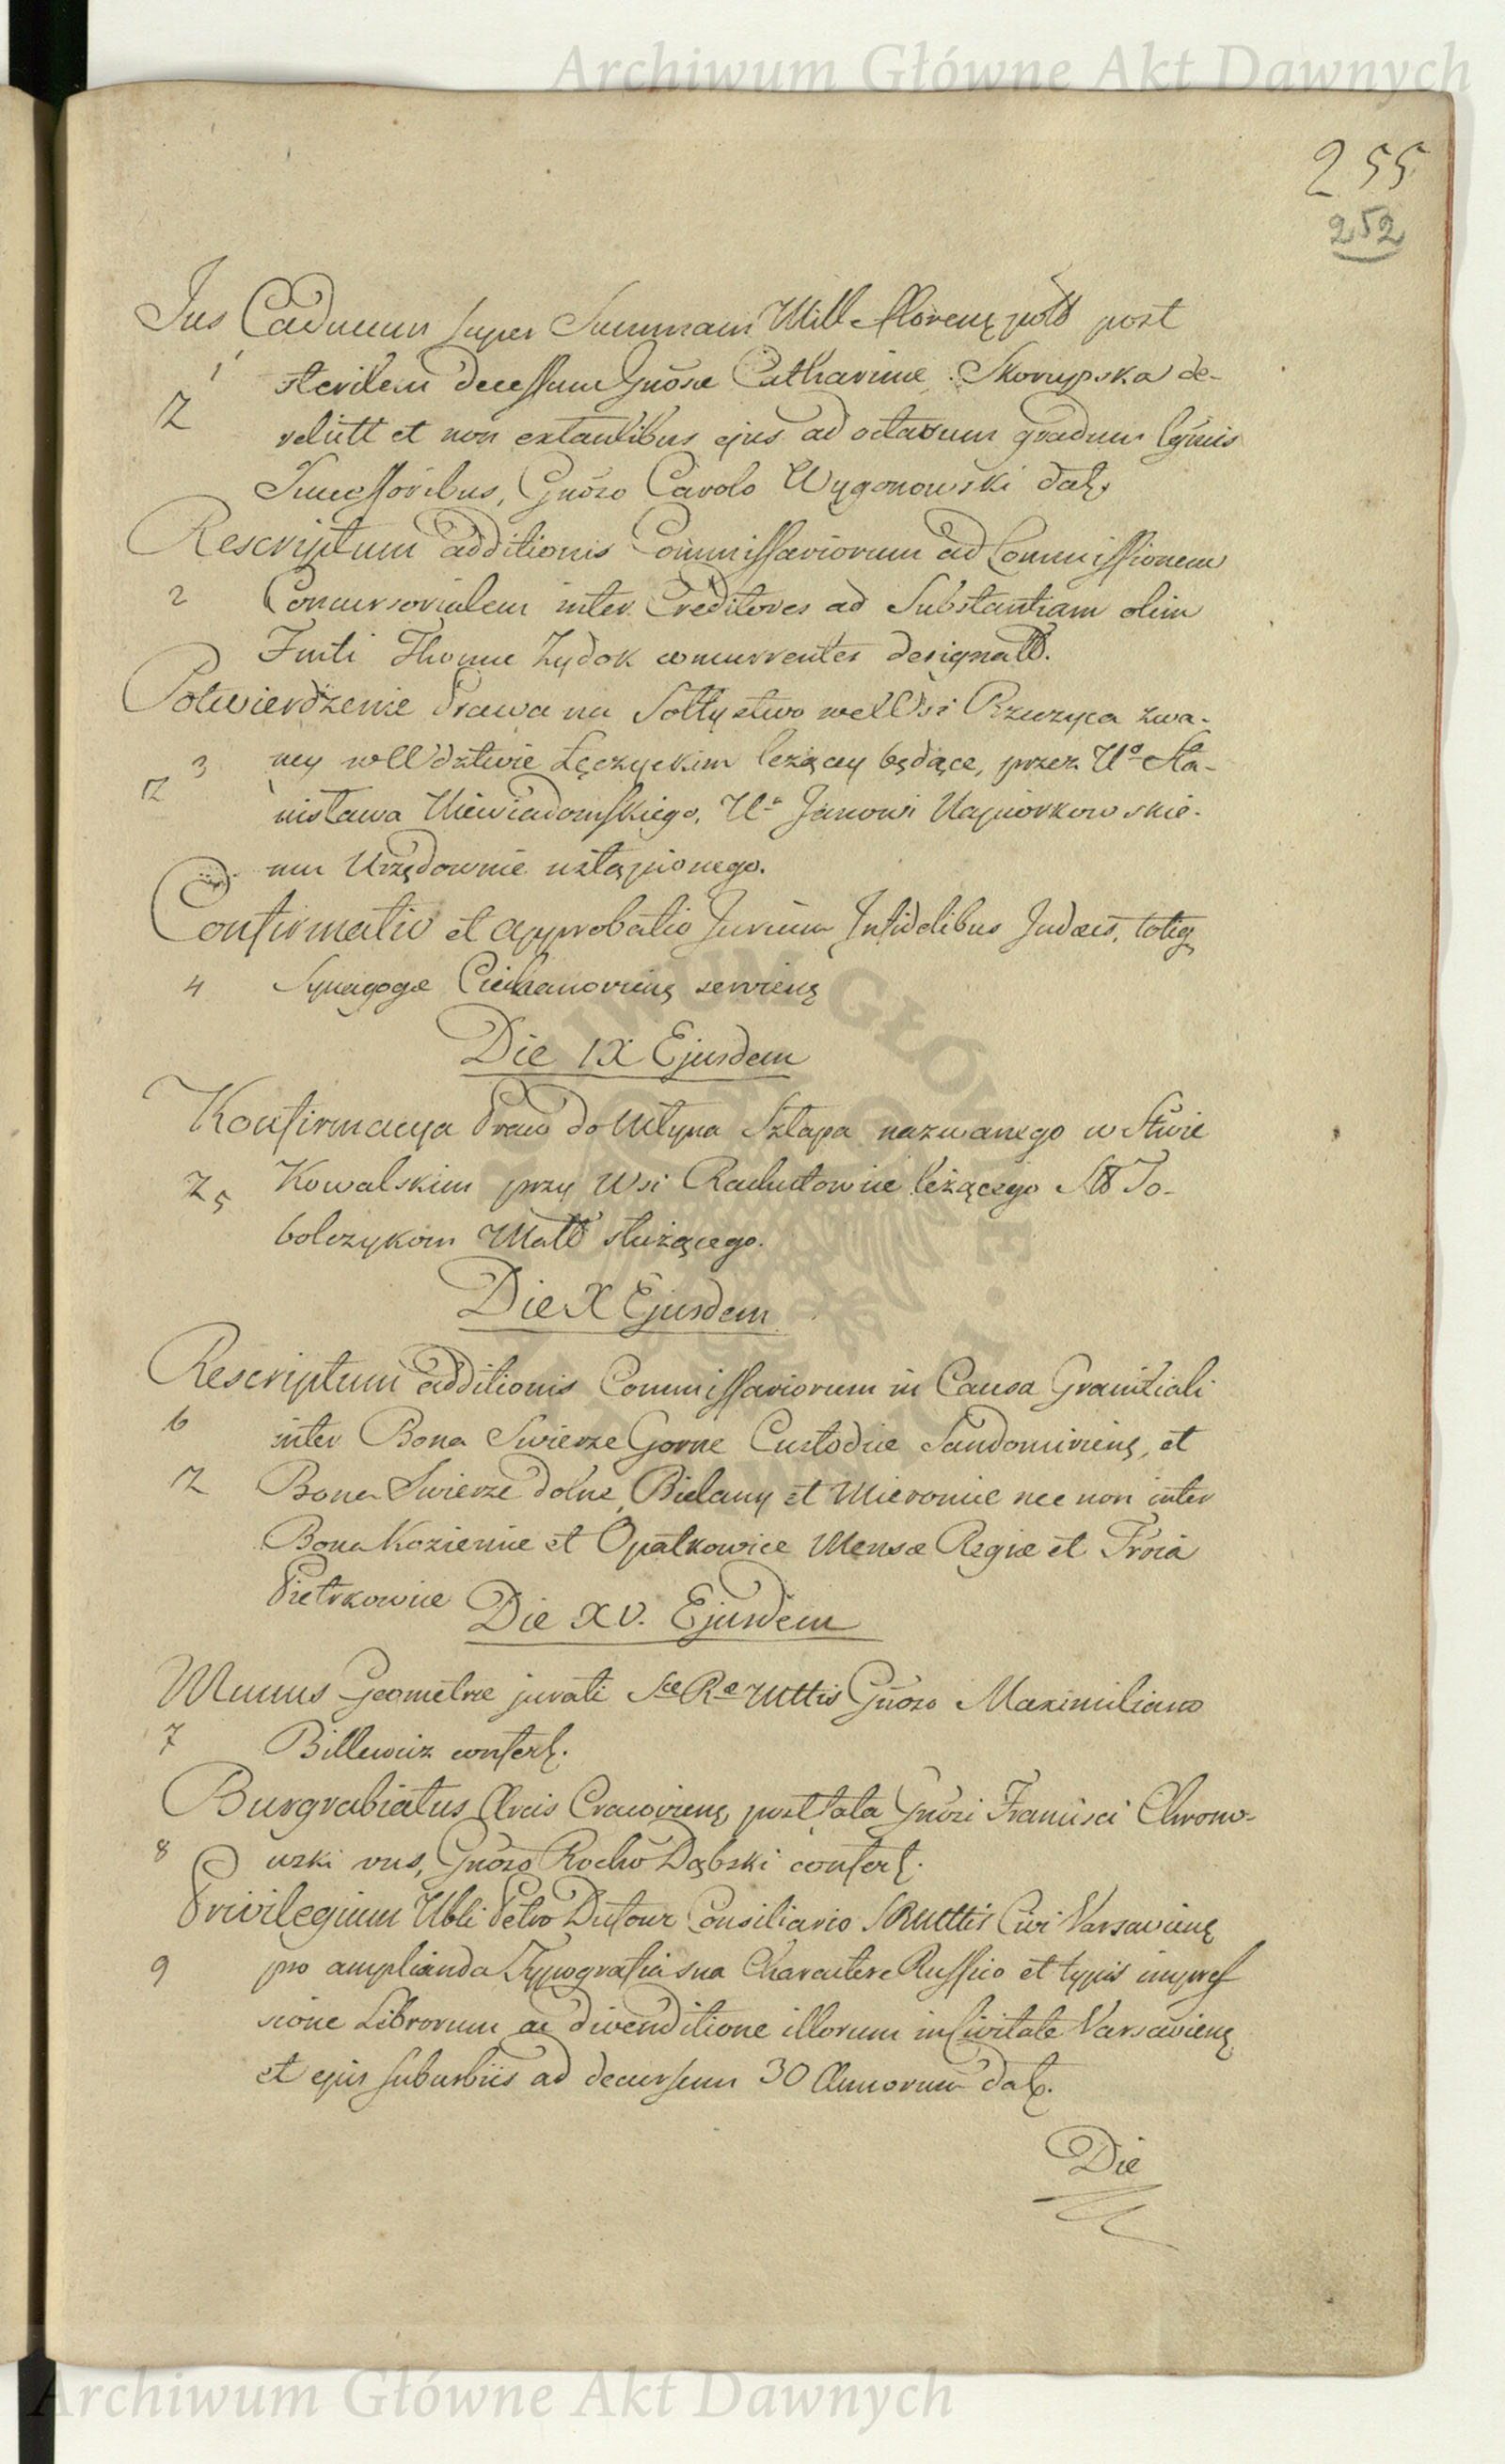 Archiwum Główne Akt Dawnych
255
252
Jus Caducum super Summam Mill Floreng poło post
1 sterilem decessum Gnosæ Catharinæ Skorupska de-
Z relictt et non extantibus ejus ad octavum gradum Lgmis
Successoribus, Gnoso Carolo Wygonowski datę.
Rescriptum additionis Commissariorum ad Commissionem
2 Concursorialem inter Creditores ad Substantiam olim
Fmti Thomæ Zydok concurrentes designatt.
Potwierdzenie Prawa na Sołtystwo we Wsi Rzuzyca zwa-
3 ney w Wdztwie Łęczyckim leżącey będące, przez Uo Sta-
Z nisława Niewiadomskiego, Uo Janowi Napiorkowskie-
mu Urzędownie ustąpionego.
Confirmatio et Approbatio Jurium Infidelibus Judæis, totiq
4 Synagogæ Ciechanovieng servieng
Die IX Ejusdem
Konfirmacya Praw do Młyna Sztapa nazwanego w Stwie
Z 5 Kowalskim przy Wsi Radutowie leżącego Stt To-
bolczykom Małt służącego.
Die X Ejusdem
Rescriptum additionis Commissariorum in Causa Granitiali
6 inter Bona Swierze Gorne Custodiæ Sandomirieng, et
Z Bona Swierze dolne, Bielany et Mieronice nec non inter
Bona Kozienice et Opatkowice Mensæ Regiæ et Troia
Pietrkowice
Die XV. Ejusdem
Munus Geometræ jurati Sæ Ræ Mttis Gnoso Maximiliano
7 Billewicz confert.
Burgrabiatus Arcis Cracovieng post fata Gnosi Francisci Chrono-
8 wski vus, Gnoso Rocho Dąbski confert.
Privilegium Nbli Petro Dufour Consiliario SRMttis Civi Varsavieng
9 pro amplianda Typografia sua Charactere Russico et typis impres
sione Librorum ac divenditione illorum in Civitate Varsavieng
et ejus suburbiis ad decursum 30 Annorum dat.
Die
Archiwum Główne Akt Dawnych